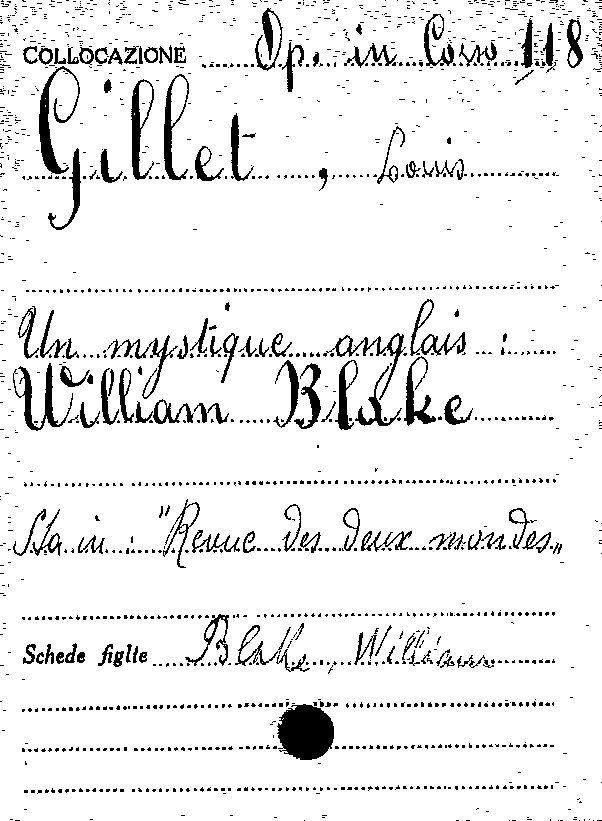 COLLOCAZIONE Op. in Corso 118
Gillet, Louis
Un mystique anglais :
William Blake
Sta in : "Revue des deux mondes„
Schede figlie Blake, William